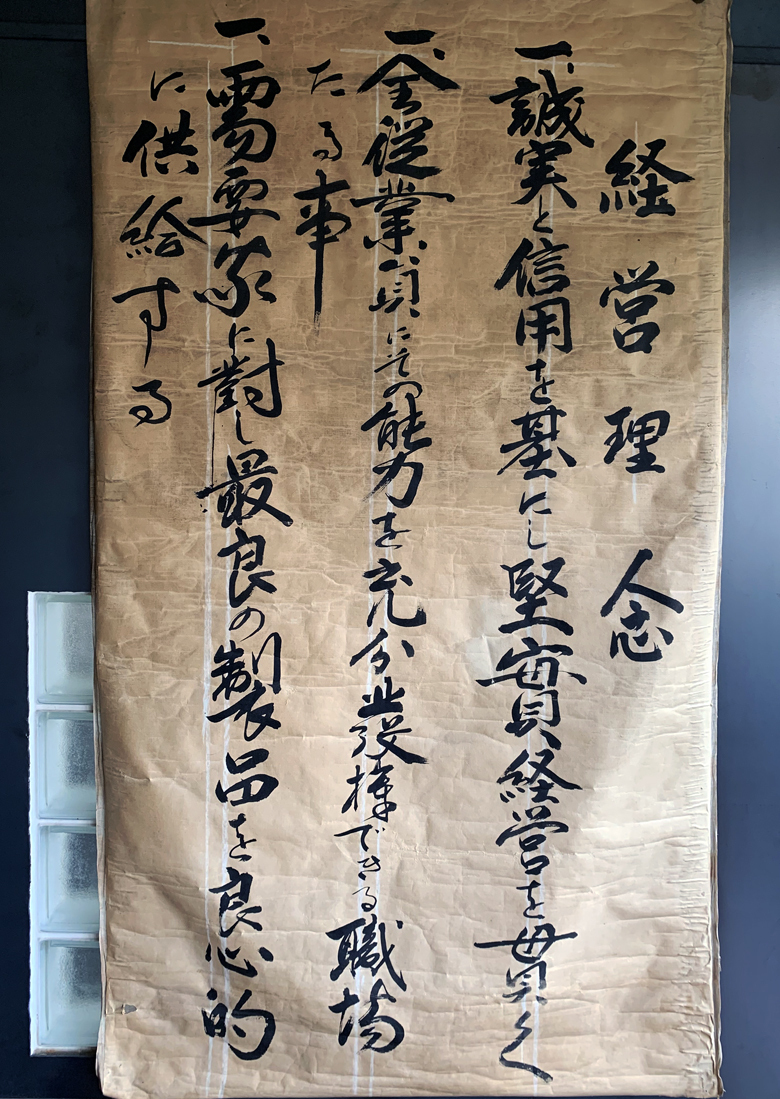 経営理念
一、誠実と信用を基にし堅実経営を貫く
一、全従業員にその能力を充分発揮できる職場
たる事
一、需要家に對し最良の製品を良心的
に供給する